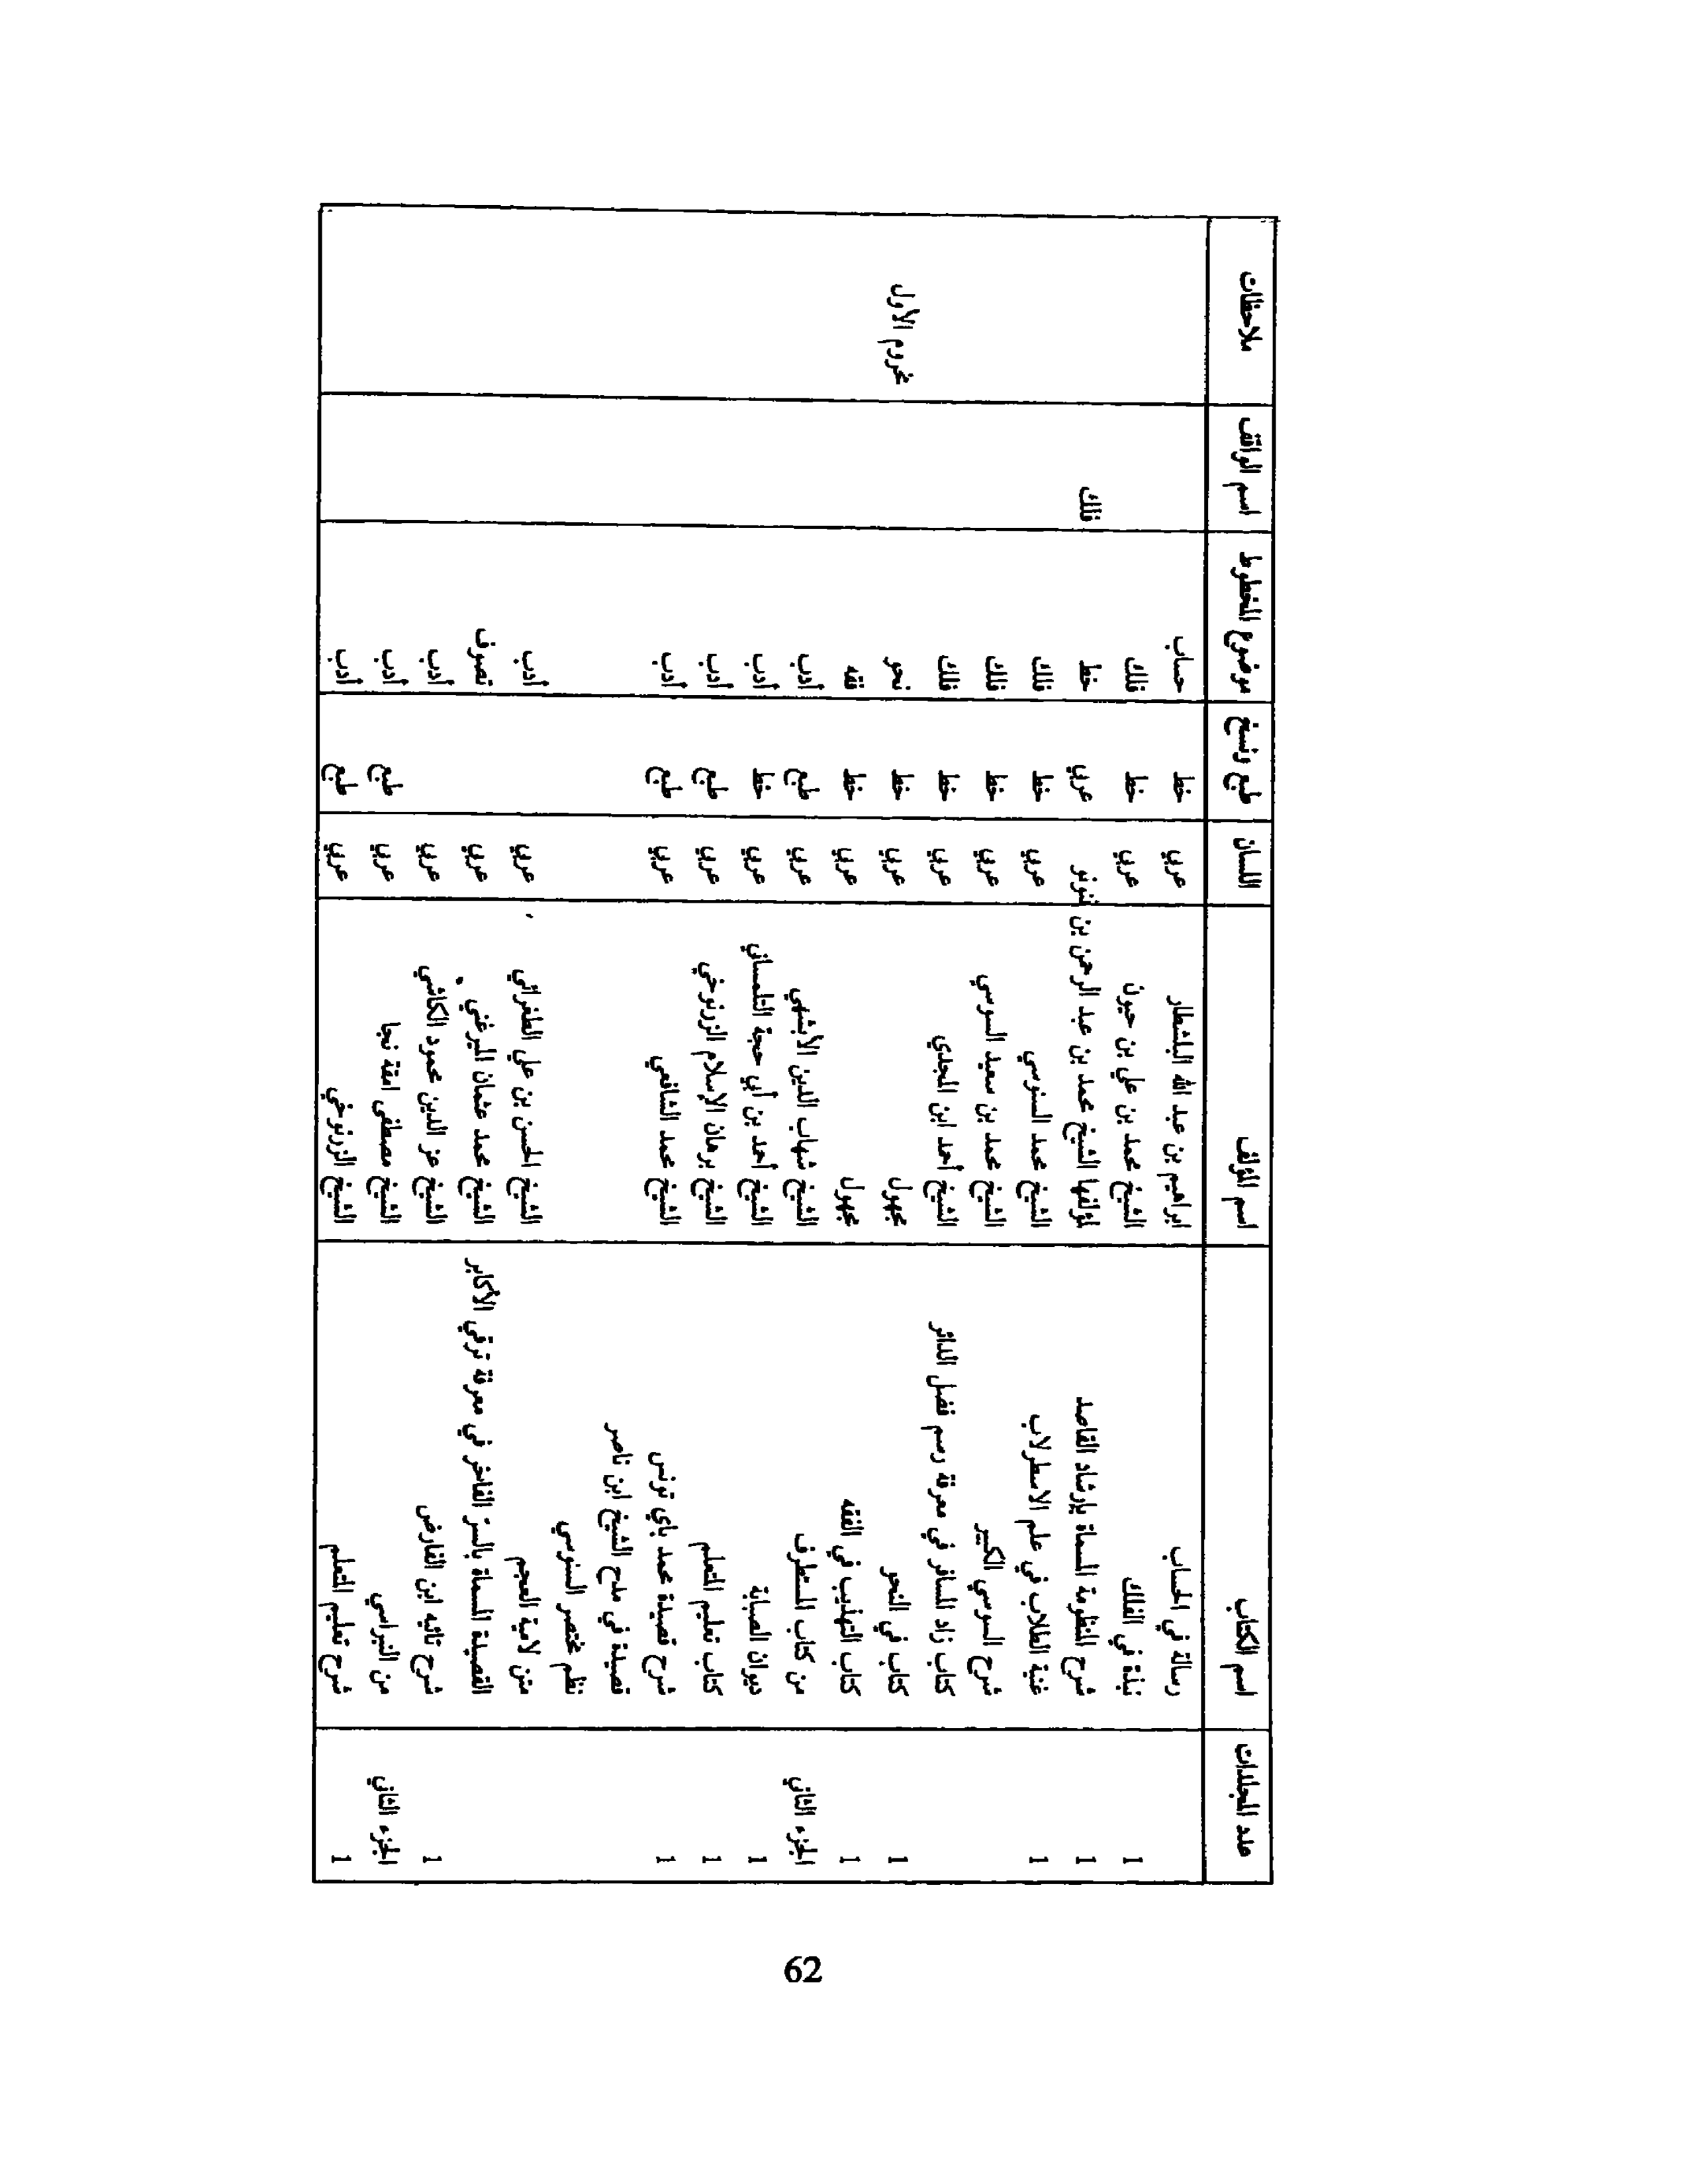 عدد المجلدات | اسم الكتاب | اسم المؤلف | اللسان | طبع ونسخ | موضوع المخطوط | اسم الواقف | ملاحظات
رسالة في الحساب | ابراهيم بن عبد الله البلشطار | عربي | خط | حساب
1 | نبذة في الفلك | الشيخ محمد بن علي بن حيون | عربي | خط | فلك
1 | شرح المنظومة المسماة بإرشاد القاصد | لمؤلفها الشيخ محمد بن عبد الرحمن بن تنونو | عربي | خط | فلك
1 | غنية الطلاب في علم الاسطرلاب | الشيخ محمد السنوسي | عربي | خط | فلك
شرح السوسي الكبير | الشيخ محمد بن سعيد السوسي | عربي | خط | فلك
كتاب زاد المسافر في معرفة رسم فضل الدائر | الشيخ أحمد ابن المجدي | عربي | خط | فلك
1 | كتاب في النحو | مجهول | عربي | خط | نحو | مخروم الأول
1 | كتاب التهذيب في الفقه | مجهول | عربي | خط | فقه
الجزء الثاني | من كتاب المستطرف | الشيخ شهاب الدين الأبشهي | عربي | طبع | أدب
1 | ديوان الصبابة | الشيخ أحمد بن أبي حجة التلمساني | عربي | خط | أدب
1 | كتاب تعليم المتعلم | الشيخ برهان الإسلام الزرنوخي | عربي | طبع | أدب
1 | شرح قصيدة محمد باي تونس | الشيخ محمد الشافعي | عربي | طبع | أدب
قصيدة في مدح الشيخ ابن ناصر
نظم مختصر السنوسي
متن لامية العجم | الشيخ الحسن بن علي الطغرائي | عربي | أدب
القصيدة المسماة بالسر الفاخر في معرفة ترقي الأكابر | الشيخ محمد عثمان الميرغني | عربي | تصوف
1 | شرح تائيه ابن الفارض | الشيخ عز الدين محمود الكاشي | عربي | أدب
الجزء الثاني | من النبراسي | الشيخ مصطفى نجا | عربي | طبع | أدب
1 | شرح تعليم المتعلم | الشيخ الزرنوخي | عربي | طبع | أدب
62